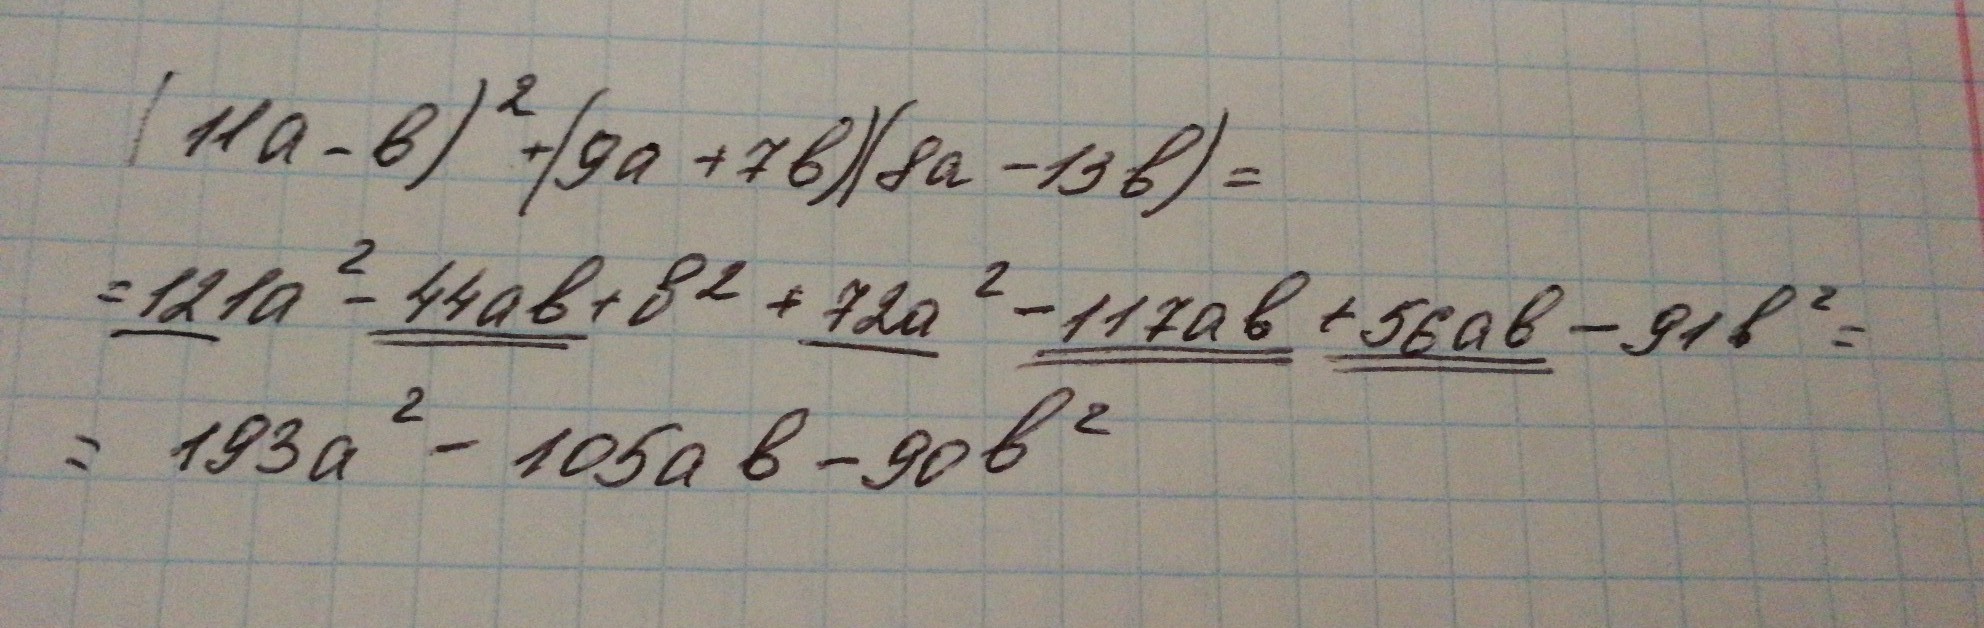 (11a-b)²+(9a+7b)(8a-13b)=
=121a²-44ab+b²+72a²-117ab+56ab-91b²=
=193a²-105ab-90b²